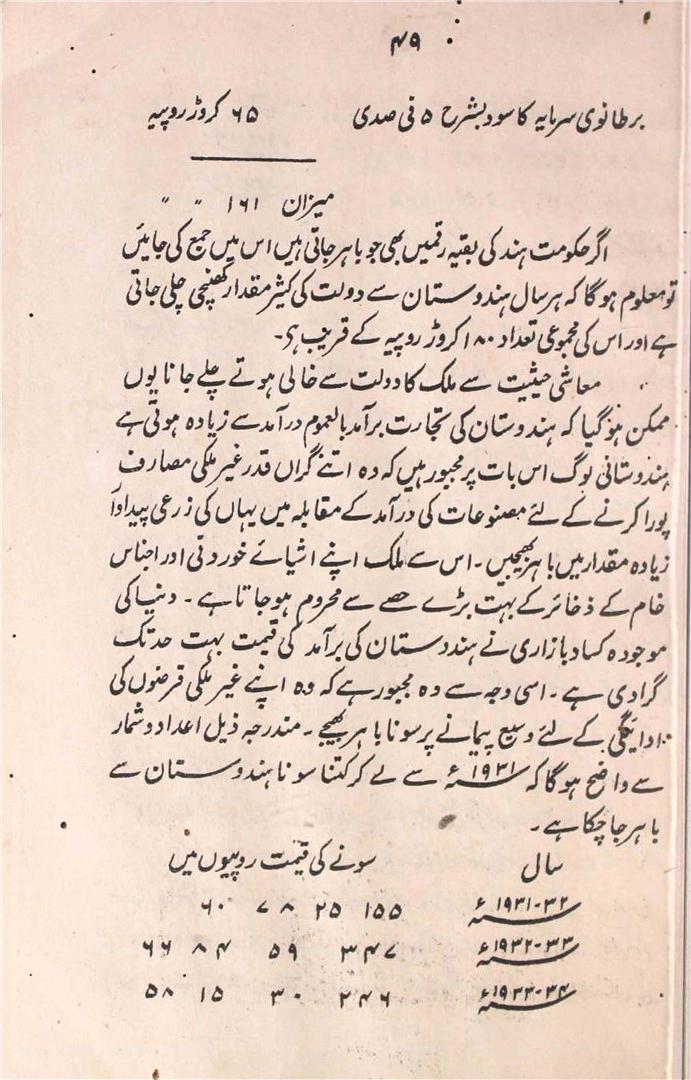 ۴۹
برطانوی سرمایہ کا سود بشرح ۵ فی صدی ۶۵ کروڑ روپیہ
میزان ۱۶۱ " "
اگر حکومت ہند کی بقیہ رقمیں بھی جو باہر جاتی ہیں اس میں جمع کی جائیں
تو معلوم ہوگا کہ ہر سال ہندوستان سے دولت کی کثیر مقدار کھنچی چلی جاتی
ہے اور اس کی مجموعی تعداد ۱۸۰ کروڑ روپیہ کے قریب ہے۔
معاشی حیثیت سے ملک کا دولت سے خالی ہوتے چلے جانا یوں
ممکن ہوگیا کہ ہندوستان کی تجارت برآمد بالعموم درآمد سے زیادہ ہوتی ہے
ہندوستانی لوگ اس بات پر مجبور ہیں کہ وہ اتنے گراں قدر غیر ملکی مصارف
پورا کرنے کے لئے مصنوعات کی درآمد کے مقابلہ میں یہاں کی زرعی پیداوار
زیادہ مقدار میں باہر بھیجیں۔ اس سے ملک اپنے اشیائے خوردنی اور اجناس
خام کے ذخائر کے بہت بڑے حصے سے محروم ہوجاتا ہے۔ دنیا کی
موجودہ کساد بازاری نے ہندوستان کی برآمد کی قیمت بہت حد تک
گرادی ہے۔ اسی وجہ سے وہ مجبور ہے کہ وہ اپنے غیر ملکی قرضوں کی
ادائگی کے لئے وسیع پیمانے پر سونا باہر بھیجے۔ مندرجہ ذیل اعداد و شمار
سے واضح ہوگا کہ ۱۹۳۱ء سے لے کر کتنا سونا ہندوستان سے
باہر جاچکا ہے۔
سال سونے کی قیمت روپیوں میں
۱۹۳۱-۳۲ء ۱۵۵ ۲۵ ۷۸ ۶۰
۱۹۳۲-۳۳ء ۳۴۷ ۵۹ ۸۴ ۶۶
۱۹۳۳-۳۴ء ۲۴۶ ۳۰ ۱۵ ۵۸